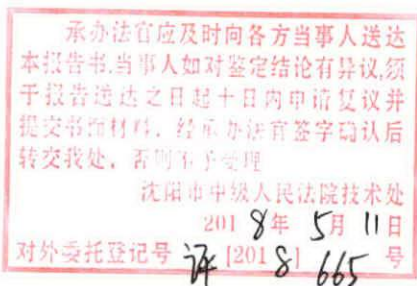 承办法官应及时向各方当事人送达
本报告书,当事人如对鉴定结论有异议,须
于报告送达之日起十日内申请复议并
提交书面材料, 经承办法官签字确认后
转交我处, 否则不予受理
沈阳市中级人民法院技术处
2018年5月11日
对外委托登记号 评[2018]665号